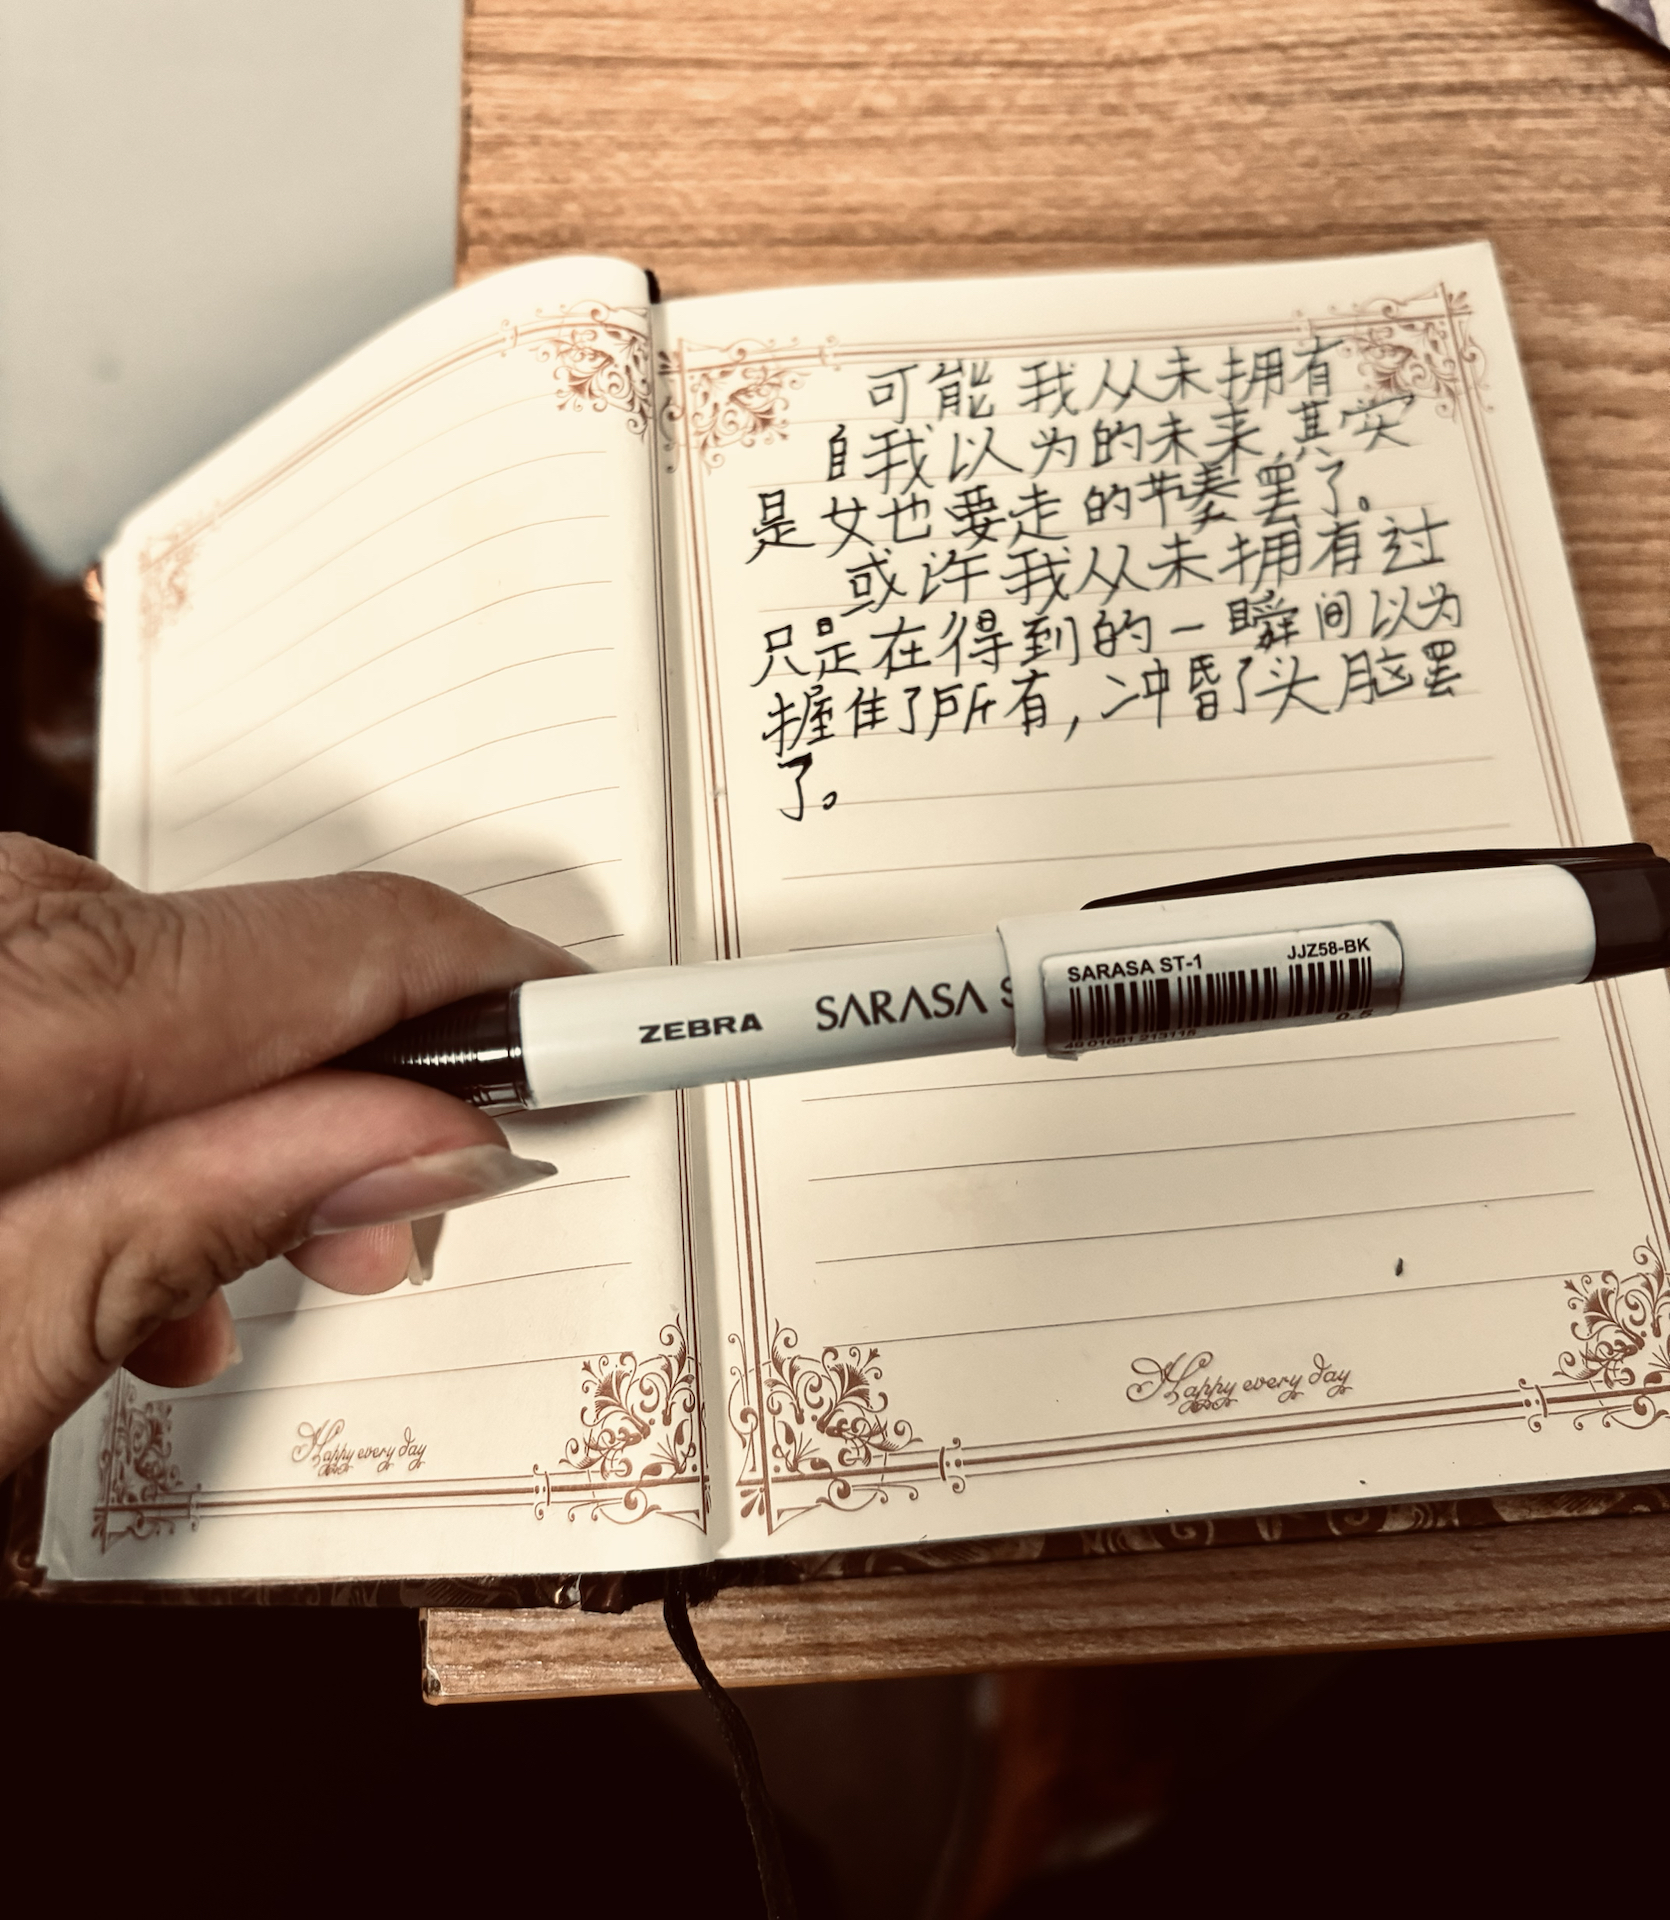 可能我从未拥有
自我以为的未来,其实
是她要走的节奏罢了。
或许我从未拥有过
只是在得到的一瞬间以为
握住了所有,冲昏了头脑罢
了。
ZEBRA SARASA S
SARASA ST-1 JJZ58-BK
0.5
Happy every day
Happy every day